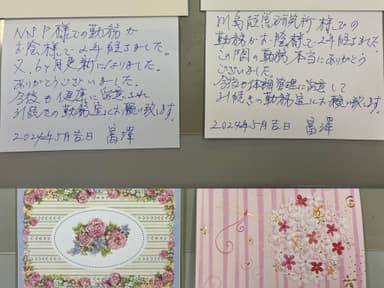 NSP様での勤務が
お陰様で2年経ちました。
又、6ヶ月更新になりました。
ありがとうございました。
今後も健康に留意され
引続きの勤務宜しくお願い致します。
2024年5月吉日
様での
勤務がお陰様で一年経ちました。
この間の勤務、本当にありがとう
ございました。
今後も体調管理に留意して
引続きの勤務宜しくお願い致します。
2024年5月吉日